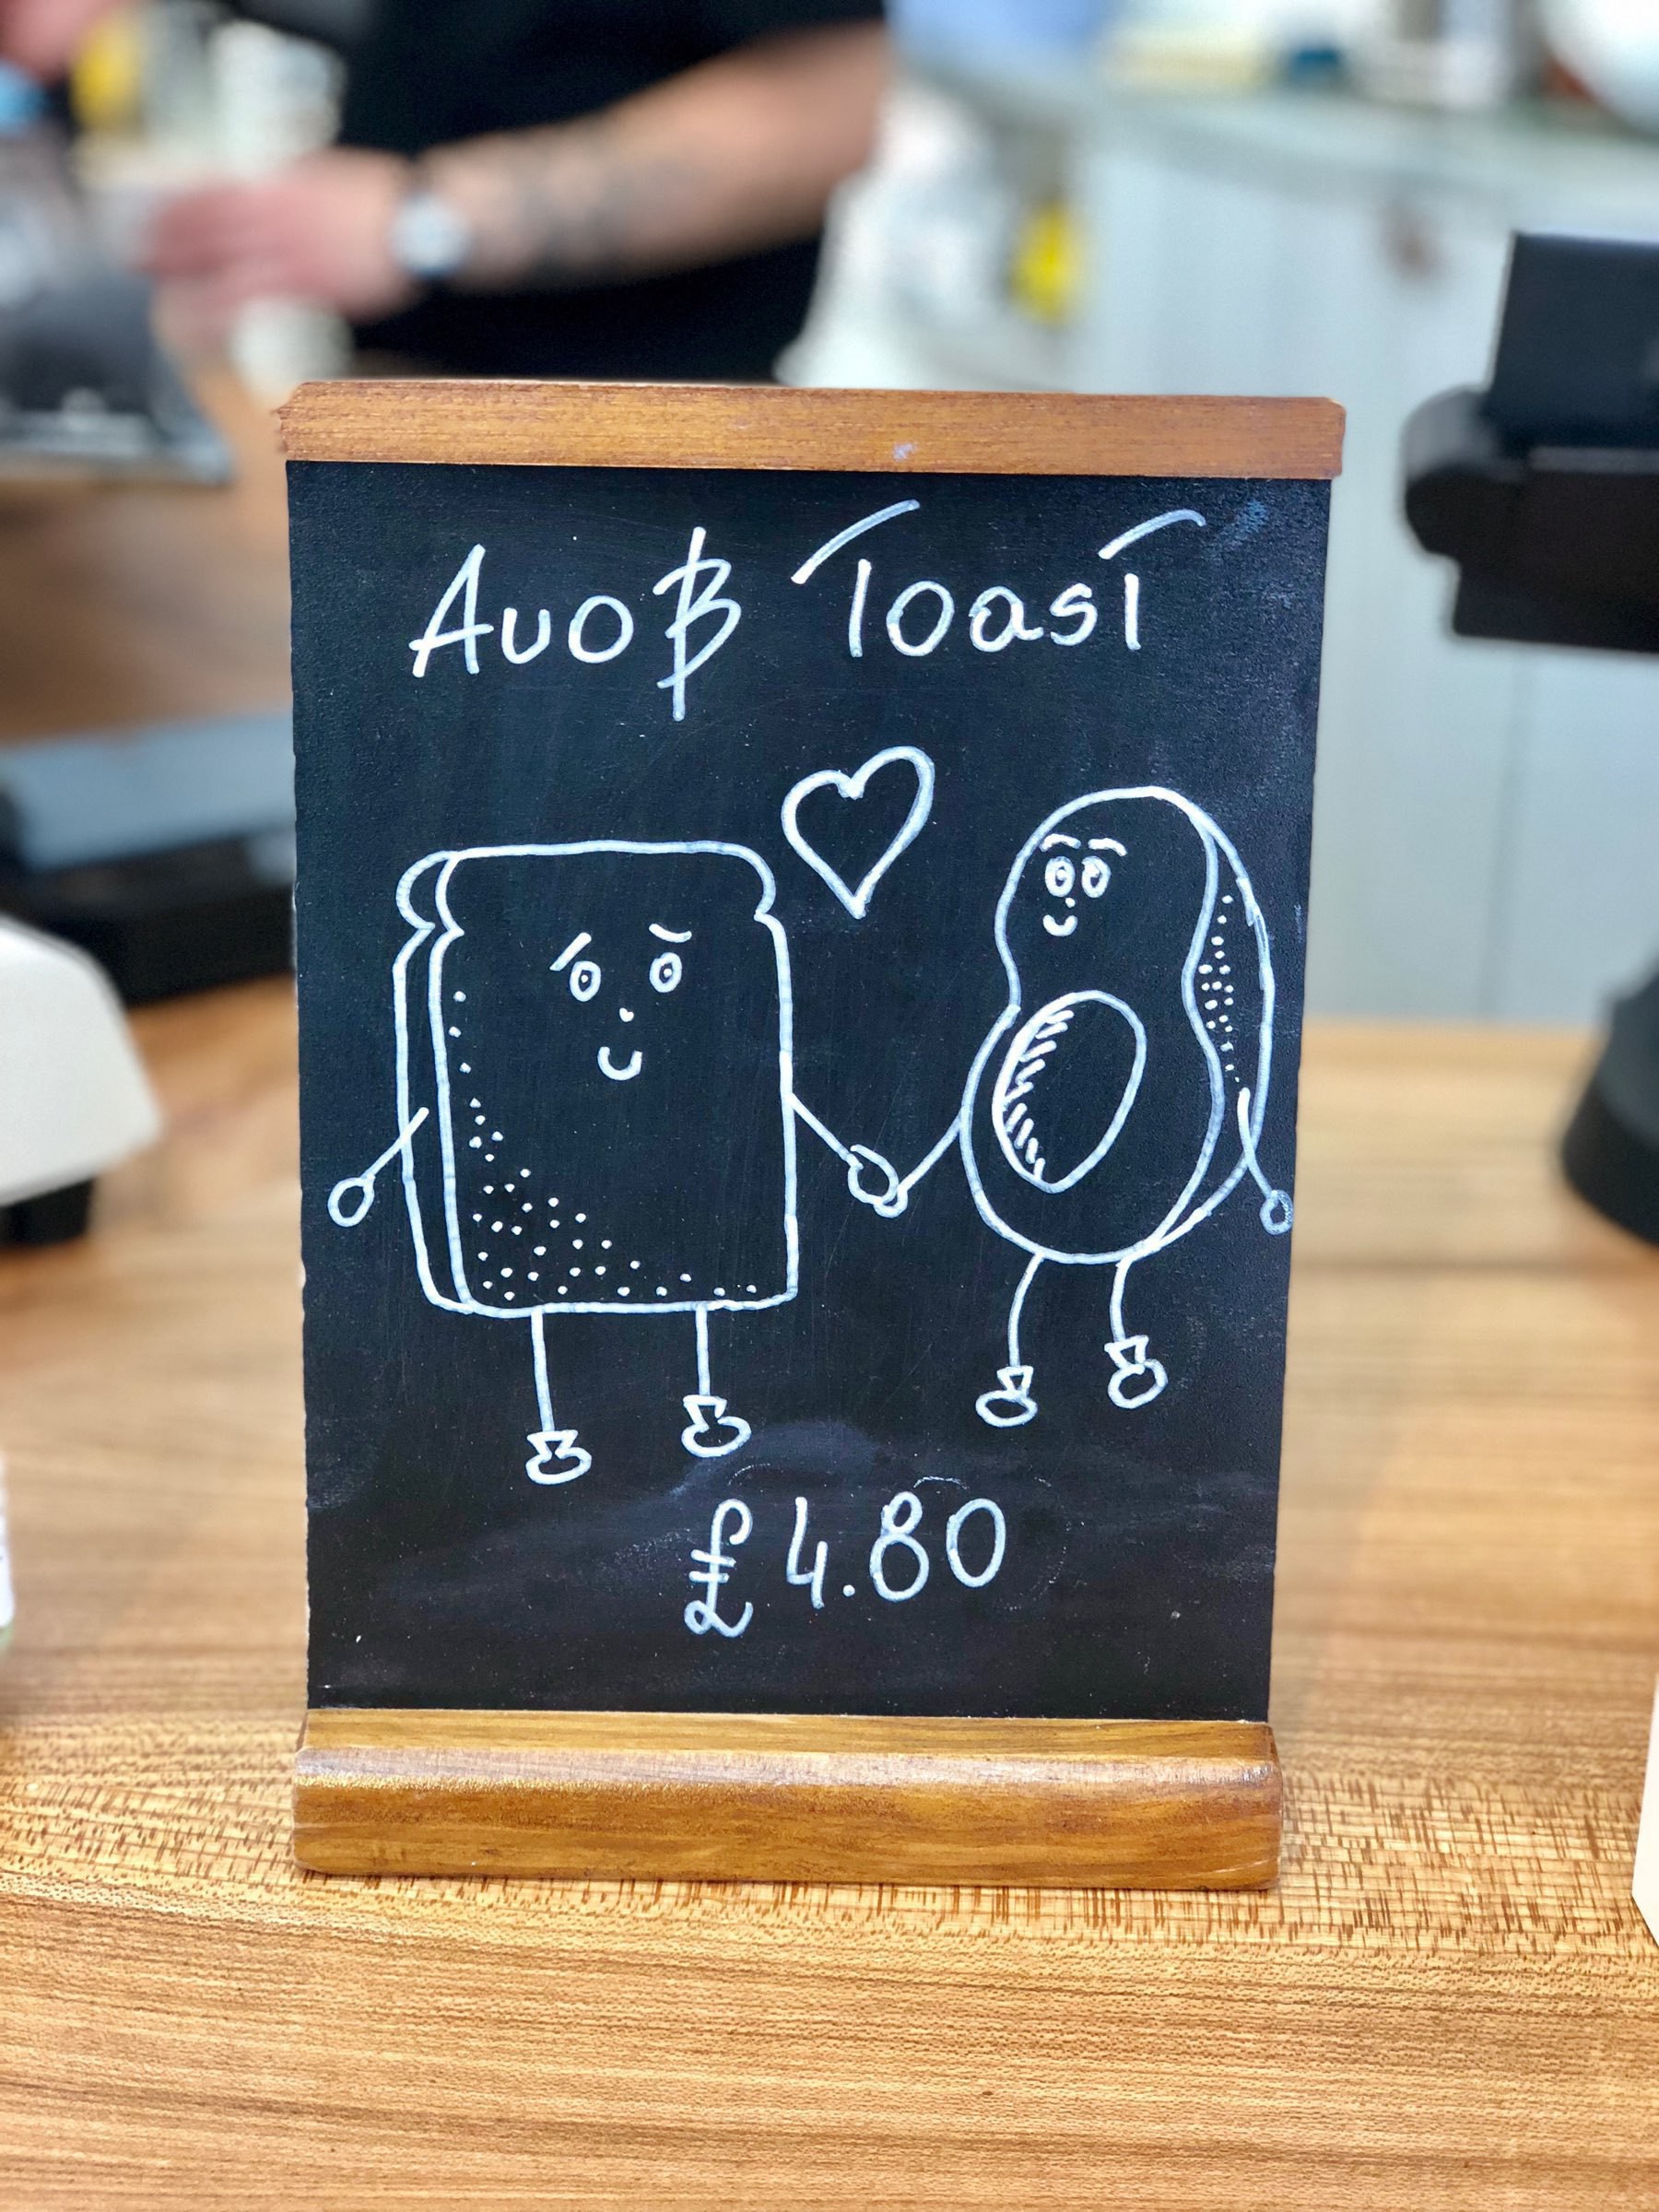 Avo & Toast
£4.80